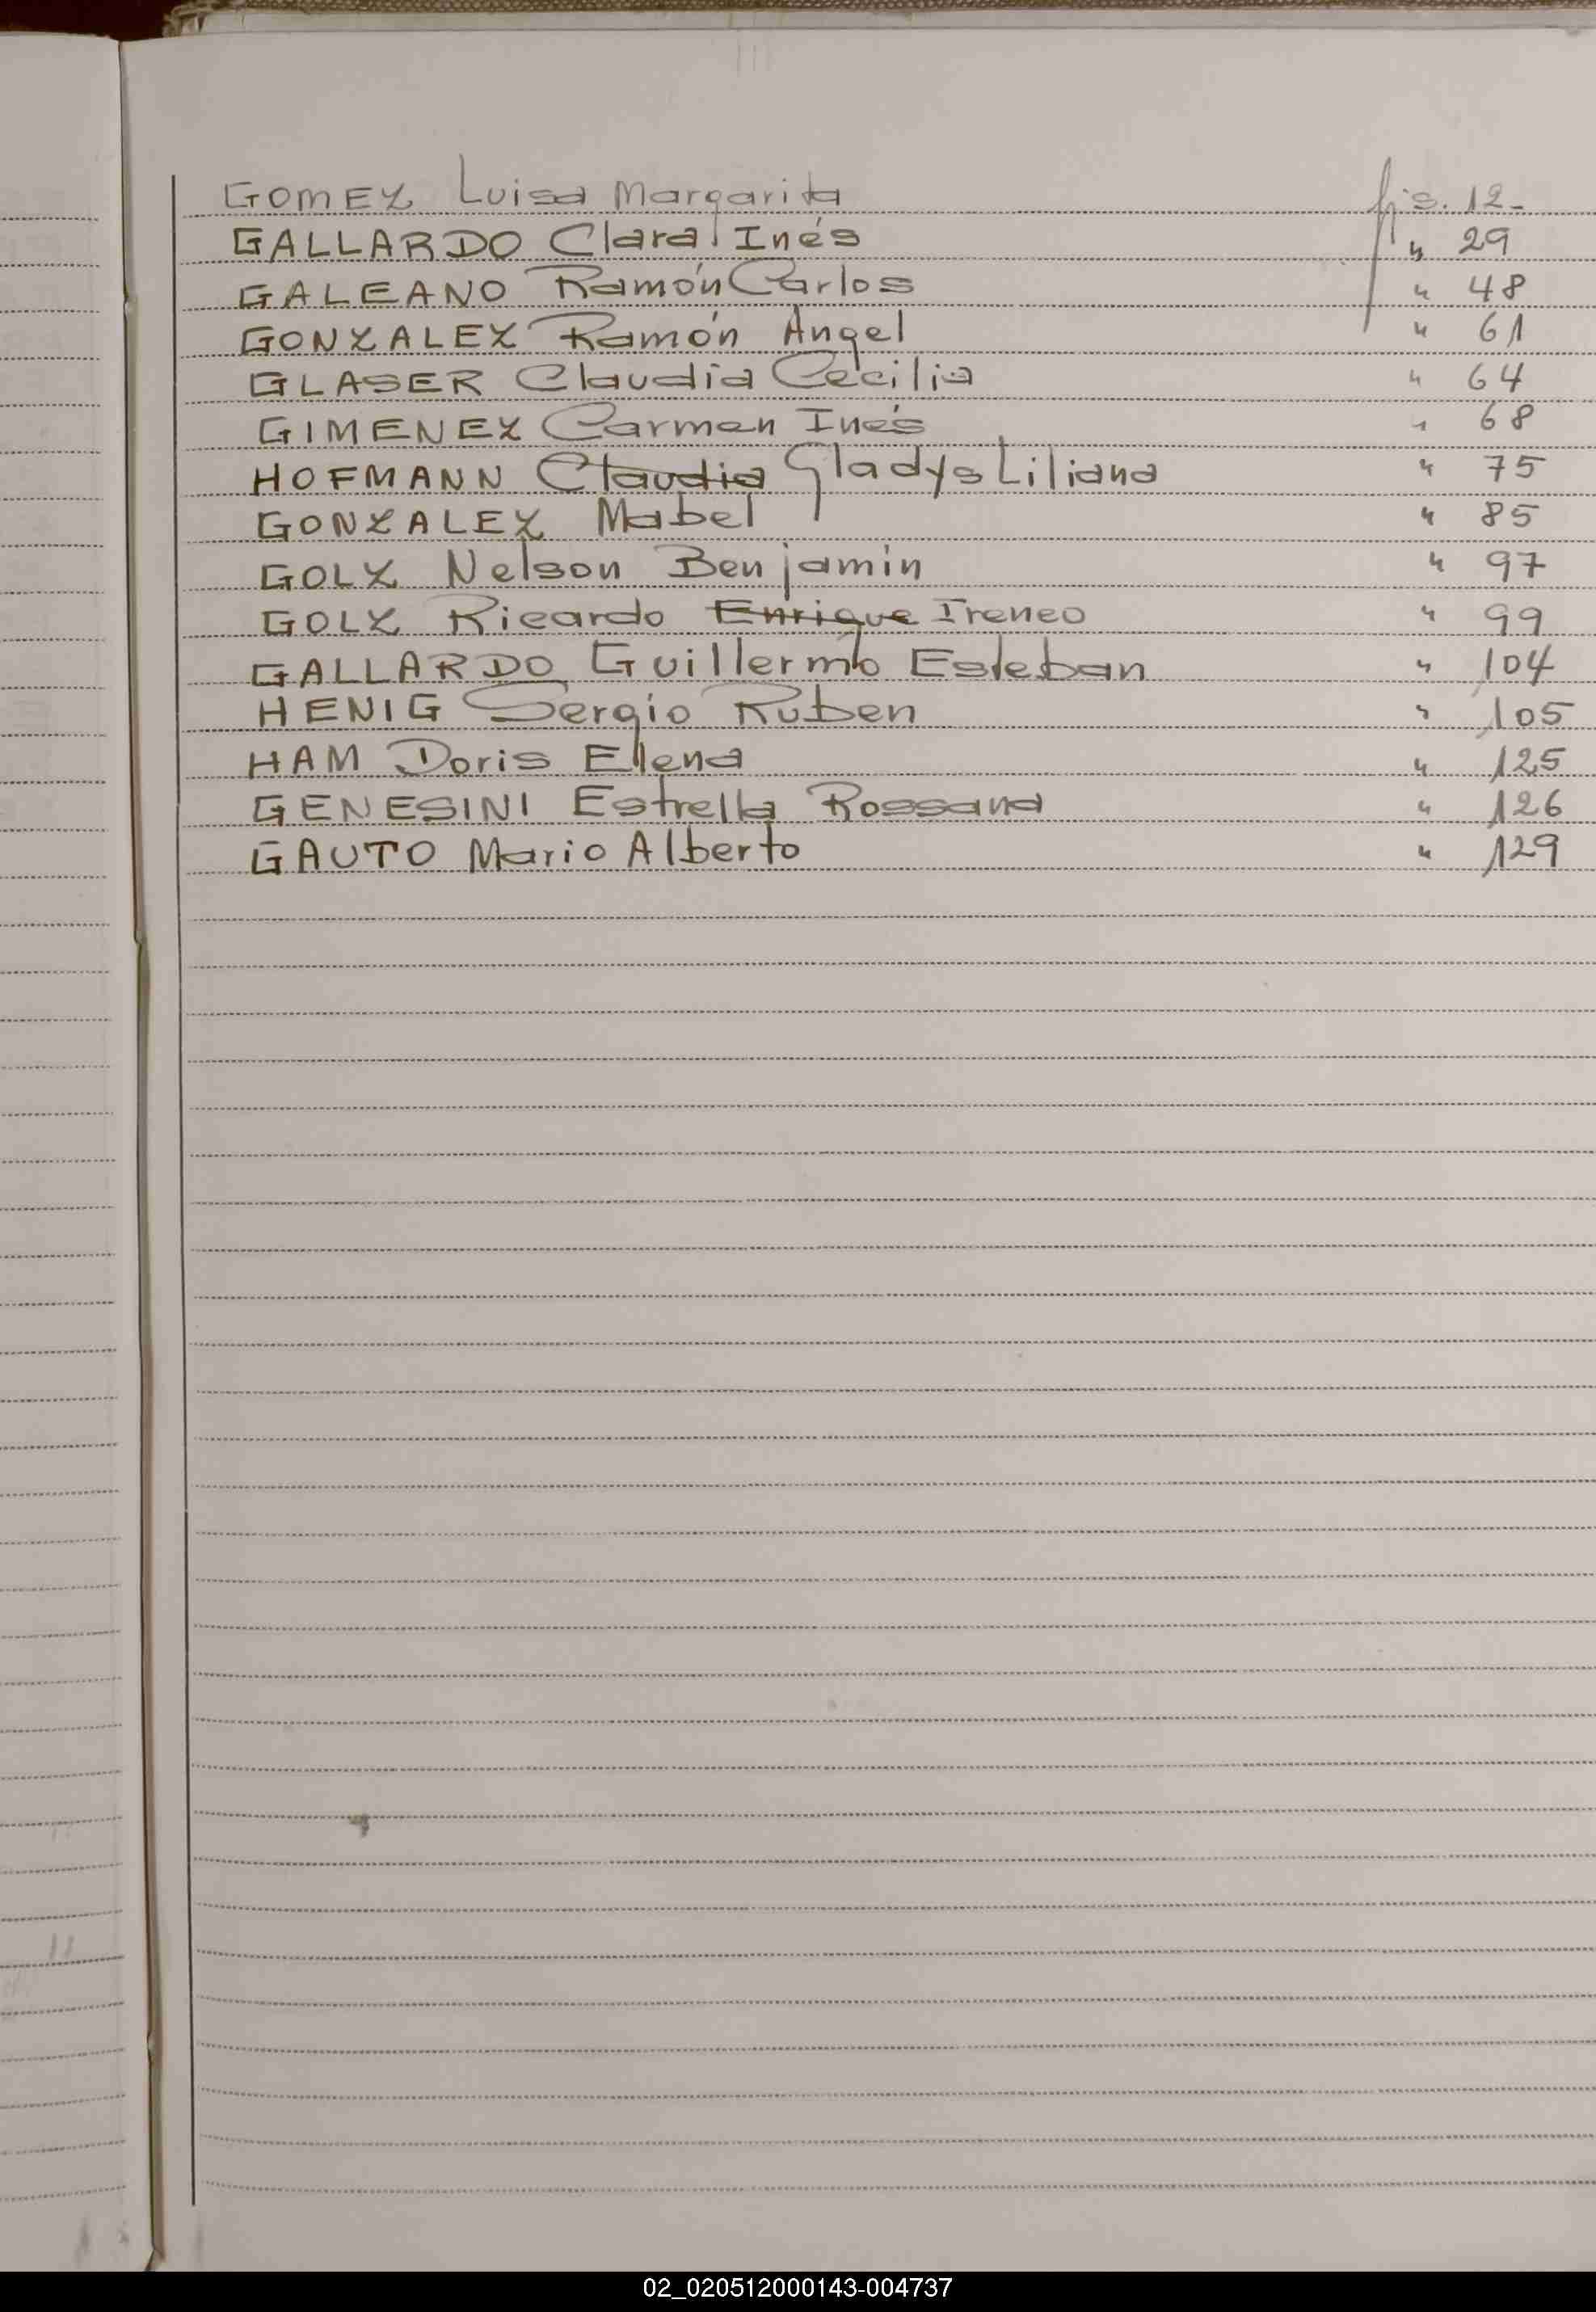 GOMEZ Luisa Margarita fjs. 12-
GALLARDO Clara Inés " 29
GALEANO Ramón Carlos " 48
GONZALEZ Ramón Angel " 61
GLASER Claudia Cecilia " 64
GIMENEZ Carmen Inés " 68
HOFMANN Claudia Gladys Liliana " 75
GONZALEZ Mabel " 85
GOLZ Nelson Benjamin " 97
GOLZ Ricardo Enrique Ireneo " 99
GALLARDO Guillermo Esteban " 104
HENIG Sergio Ruben " 105
HAM Doris Elena " 125
GENESINI Estrella Rossana " 126
GAUTO Mario Alberto " 129
02_020512000143-004737